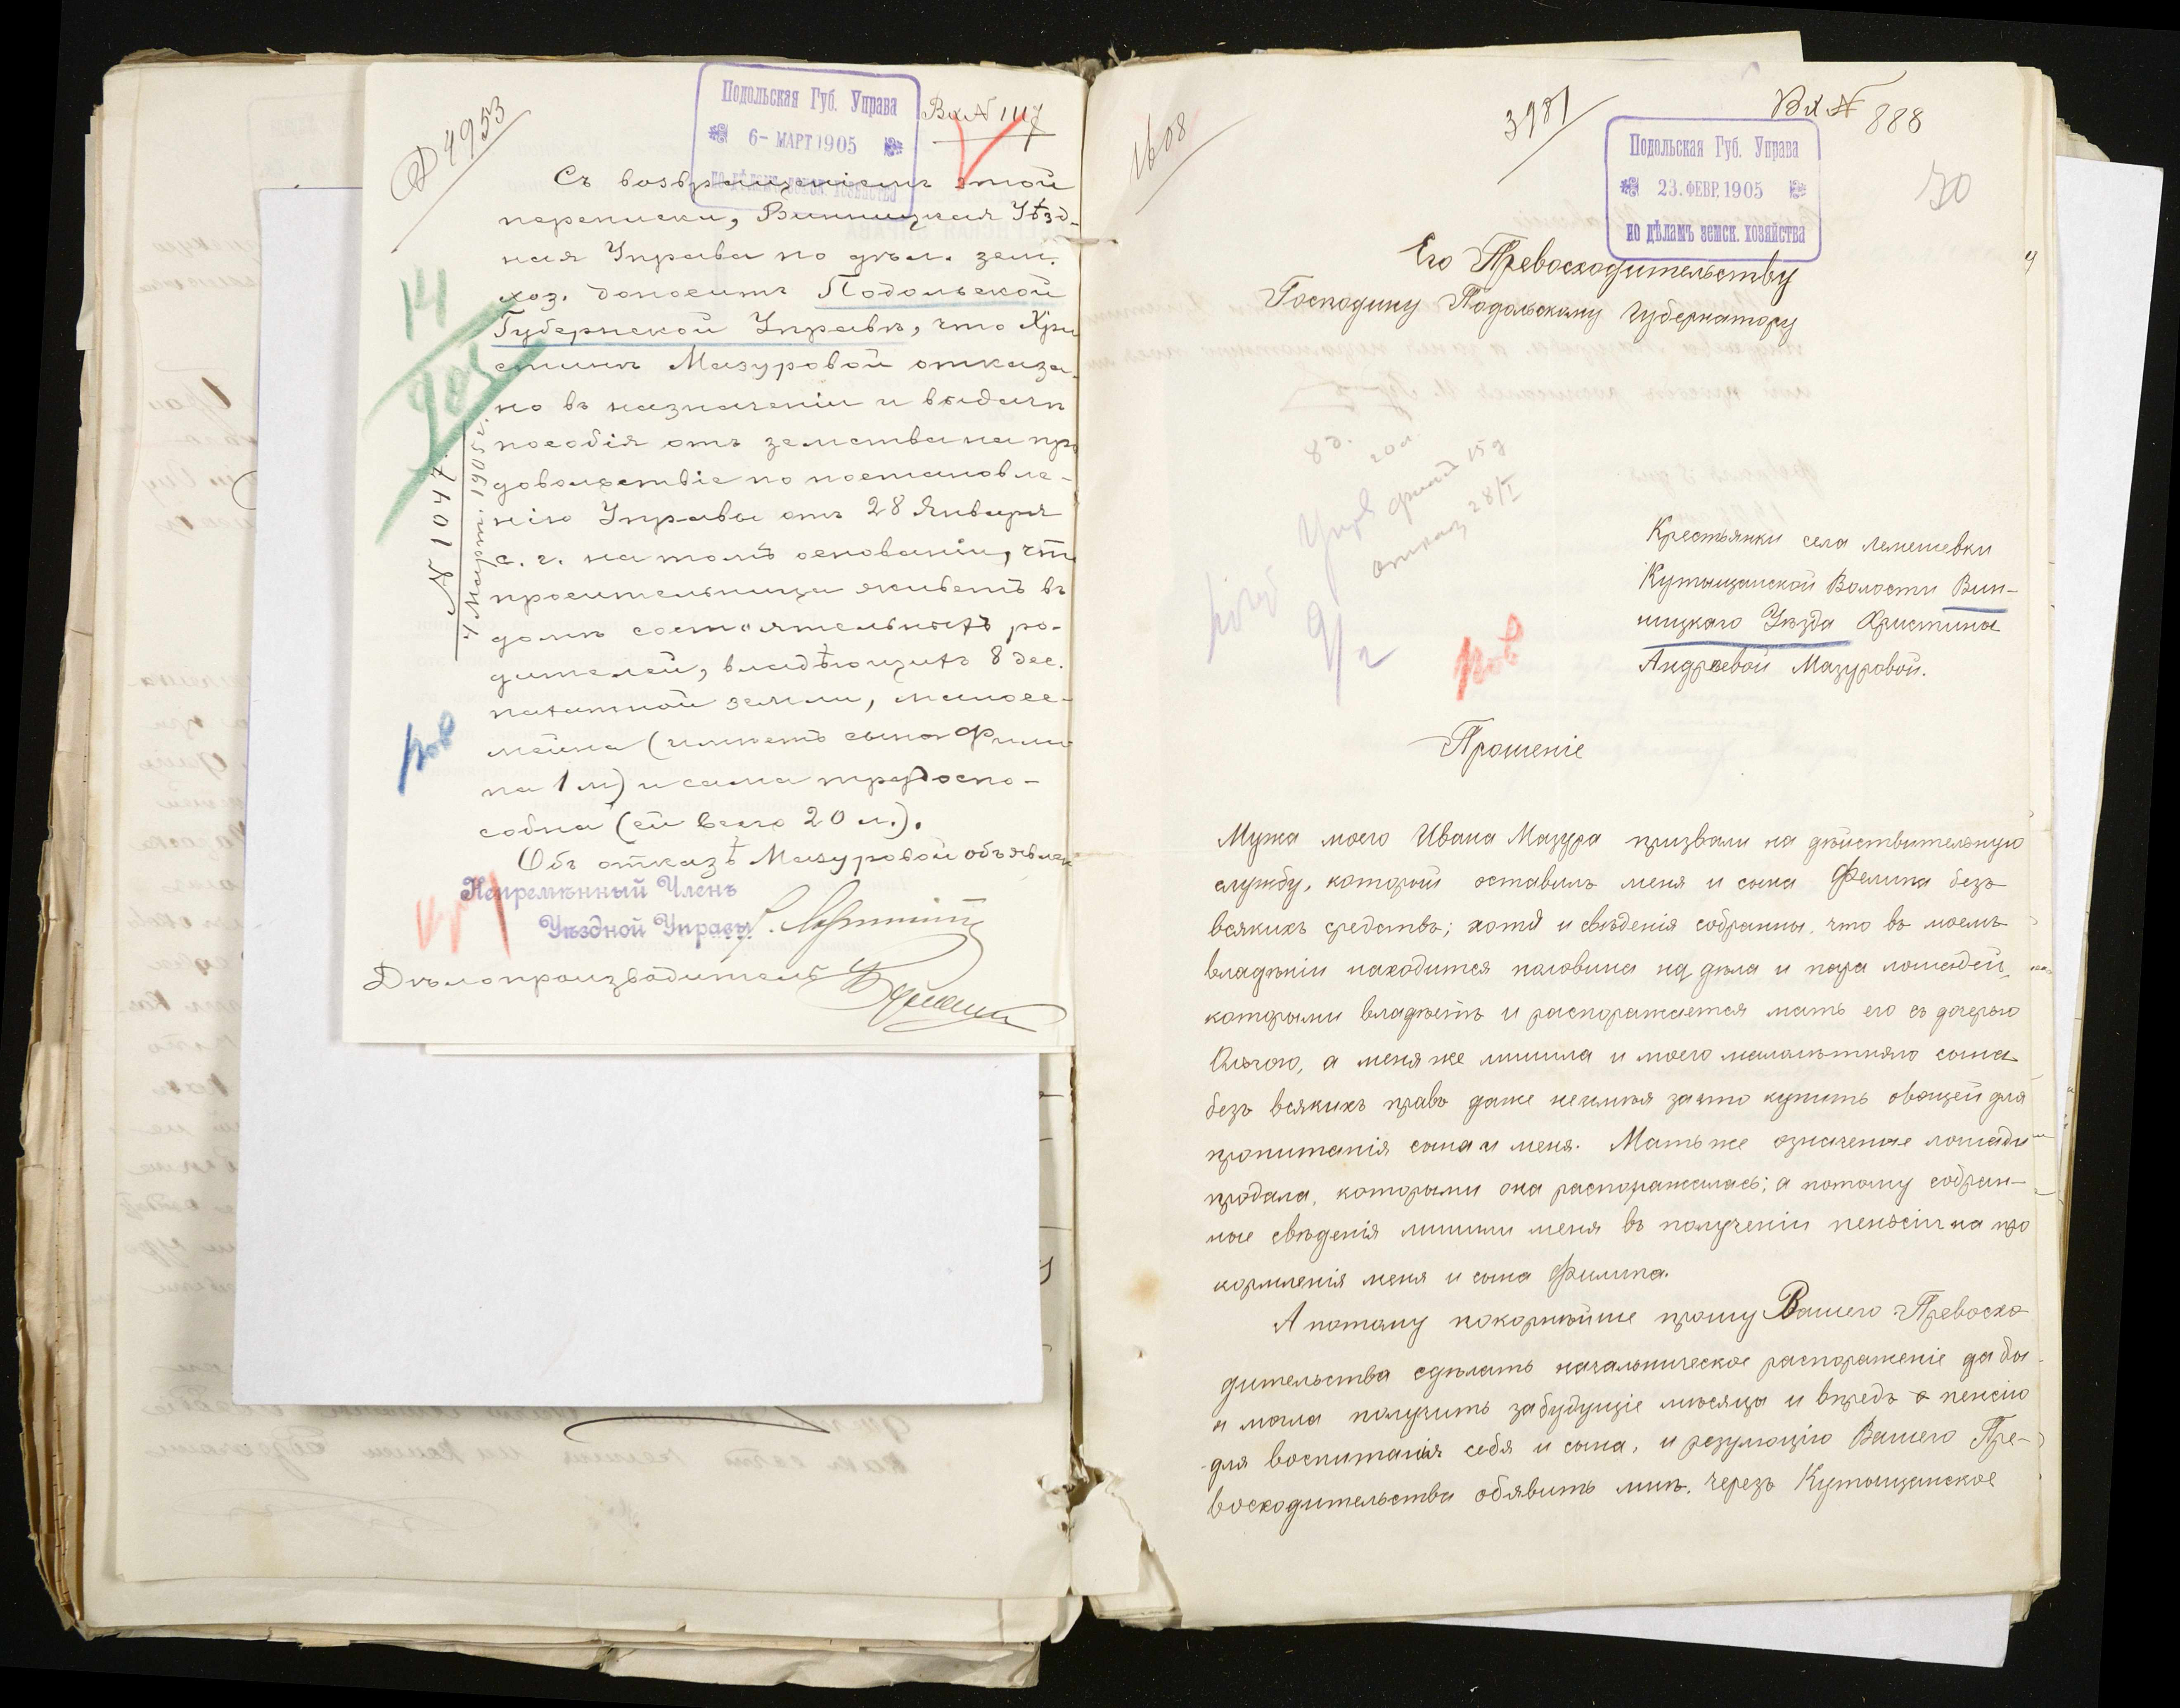 4953
Подольская Губ. Управа
6- МАРТ 1905
Вх № 1117
Съ возвращеніемъ этой
переписки, Винницкая Уѣзд-
ная Управа по дѣл. зем.
хоз. доноситъ Подольской
Губернской Управѣ, что Хри
стинѣ Мазуровой отказа-
но въ назначеніи и выдачѣ
пособія отъ земства на про
довольствіе по постановле-
нію Управы отъ 28 Января
с. г. на томъ основаніи, что
просительница живетъ въ
домѣ состоятельныхъ ро-
дителей, владѣющихъ 8 дес.
пахатной земли, малосе-
мейна (имѣетъ сына Фили
па 1 м) и сама трудоспо-
собна (ей всего 20 л.).
Объ отказѣ Мазуровой объявлен
Непремѣнный Членъ
Уѣздной Управы
Дѣлопроизводитель
14
905
№ 1047
4 Март. 1905 г.
1608
3981
Вх № 888
Подольская Губ. Управа
23. ФЕВР. 1905
по дѣламъ земск. хозяйства
30
Его Превосходительству
Господину Подольскому Губернатору
8 д.
20 л.
отказ 28/I
9/2
Крестьянки села Лемешевки
Кутыщанской Волости Вин-
ницкаго Уѣзда Христины
Андреевой Мазуровой.
Прошеніе
Мужа моего Ивана Мазура призвали на дѣйствительную
службу, которой оставилъ меня и сына Фелипа безъ
всякихъ средствъ; хотя и свѣденія собранны, что въ моемъ
владѣніи находится половина надѣла и пара лошадей,
которыми владѣетъ и распоражается мать его съ дочерью
Ольгою, а меня же лишила и моего малолѣтняго сына
безъ всякихъ правъ даже неимѣя зачто купить овощей для
пропитанія сына и меня. Мать же означеные лошади
продала, которыми она распоражалась; а потому собран-
ные свѣденія лишили меня въ полученіи пенсіи на про
кормленія меня и сына Филипа.
А потому покорнѣйше прошу Вашего Превосхо-
дительства сдѣлать начальническое распораженіе да бы
я могла получить забудущіе мѣсяцы и впредъ пенсію
для воспитанія себя и сына, и резулюцію Вашего Пре-
восходительства обявить мнѣ. черезъ Кутыщанское